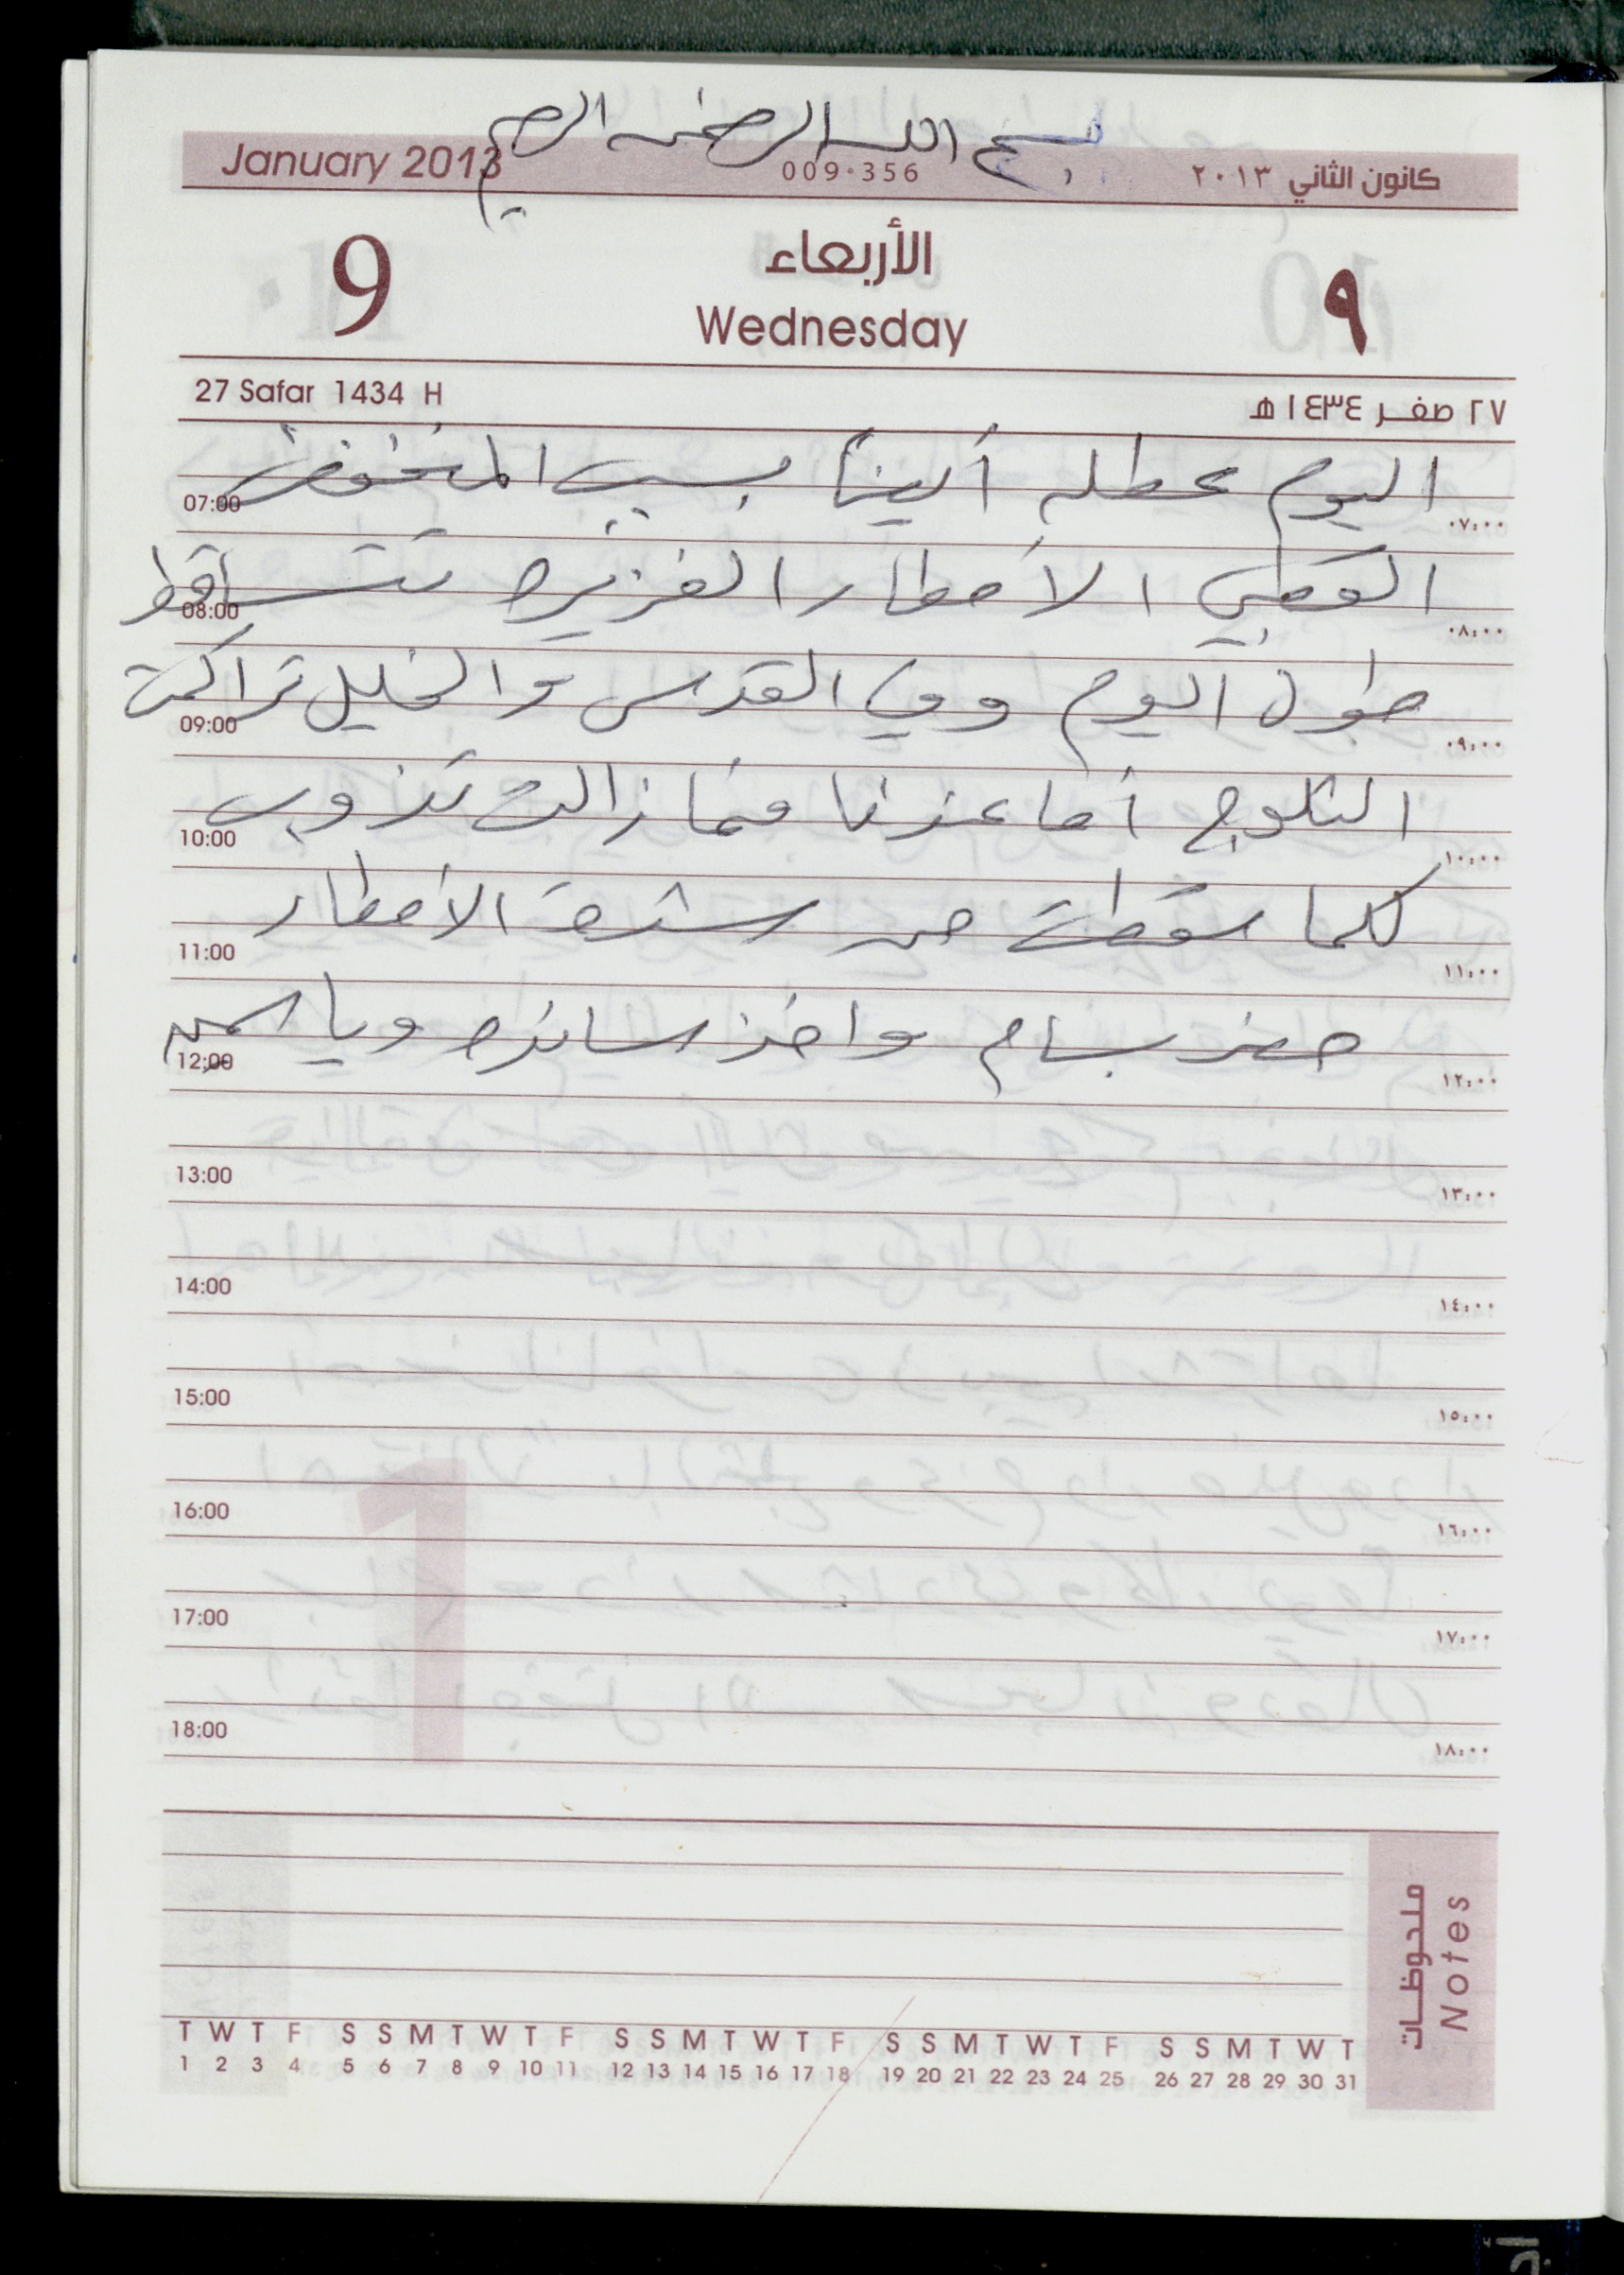 بسم الله الرحمن الرحيم
January 2013
009·356
كانون الثاني ٢٠١٣
9
الأربعاء
Wednesday
٩
27 Safar 1434 H
٢٧ صفر ١٤٣٤ هـ
اليوم عطله أيضاً بسبب المنخفض
07:00 ٠٧:٠٠
القطبي الأمطار الغزيره تتساقط
08:00 ٠٨:٠٠
طول اليوم وفي القدس والخليل تراكمت
09:00 ٠٩:٠٠
الثلوج أما عندنا فما زالت تذوب
10:00 ١٠:٠٠
كلما سقطت من شدة الأمطار
11:00 ١١:٠٠
حضر بسام واخذ سانده وياسمين
12:00 ١٢:٠٠
13:00 ١٣:٠٠
14:00 ١٤:٠٠
15:00 ١٥:٠٠
16:00 ١٦:٠٠
17:00 ١٧:٠٠
18:00 ١٨:٠٠
ملحوظات
Notes
T W T F S S M T W T F S S M T W T F S S M T W T F S S M T W T
1 2 3 4 5 6 7 8 9 10 11 12 13 14 15 16 17 18 19 20 21 22 23 24 25 26 27 28 29 30 31